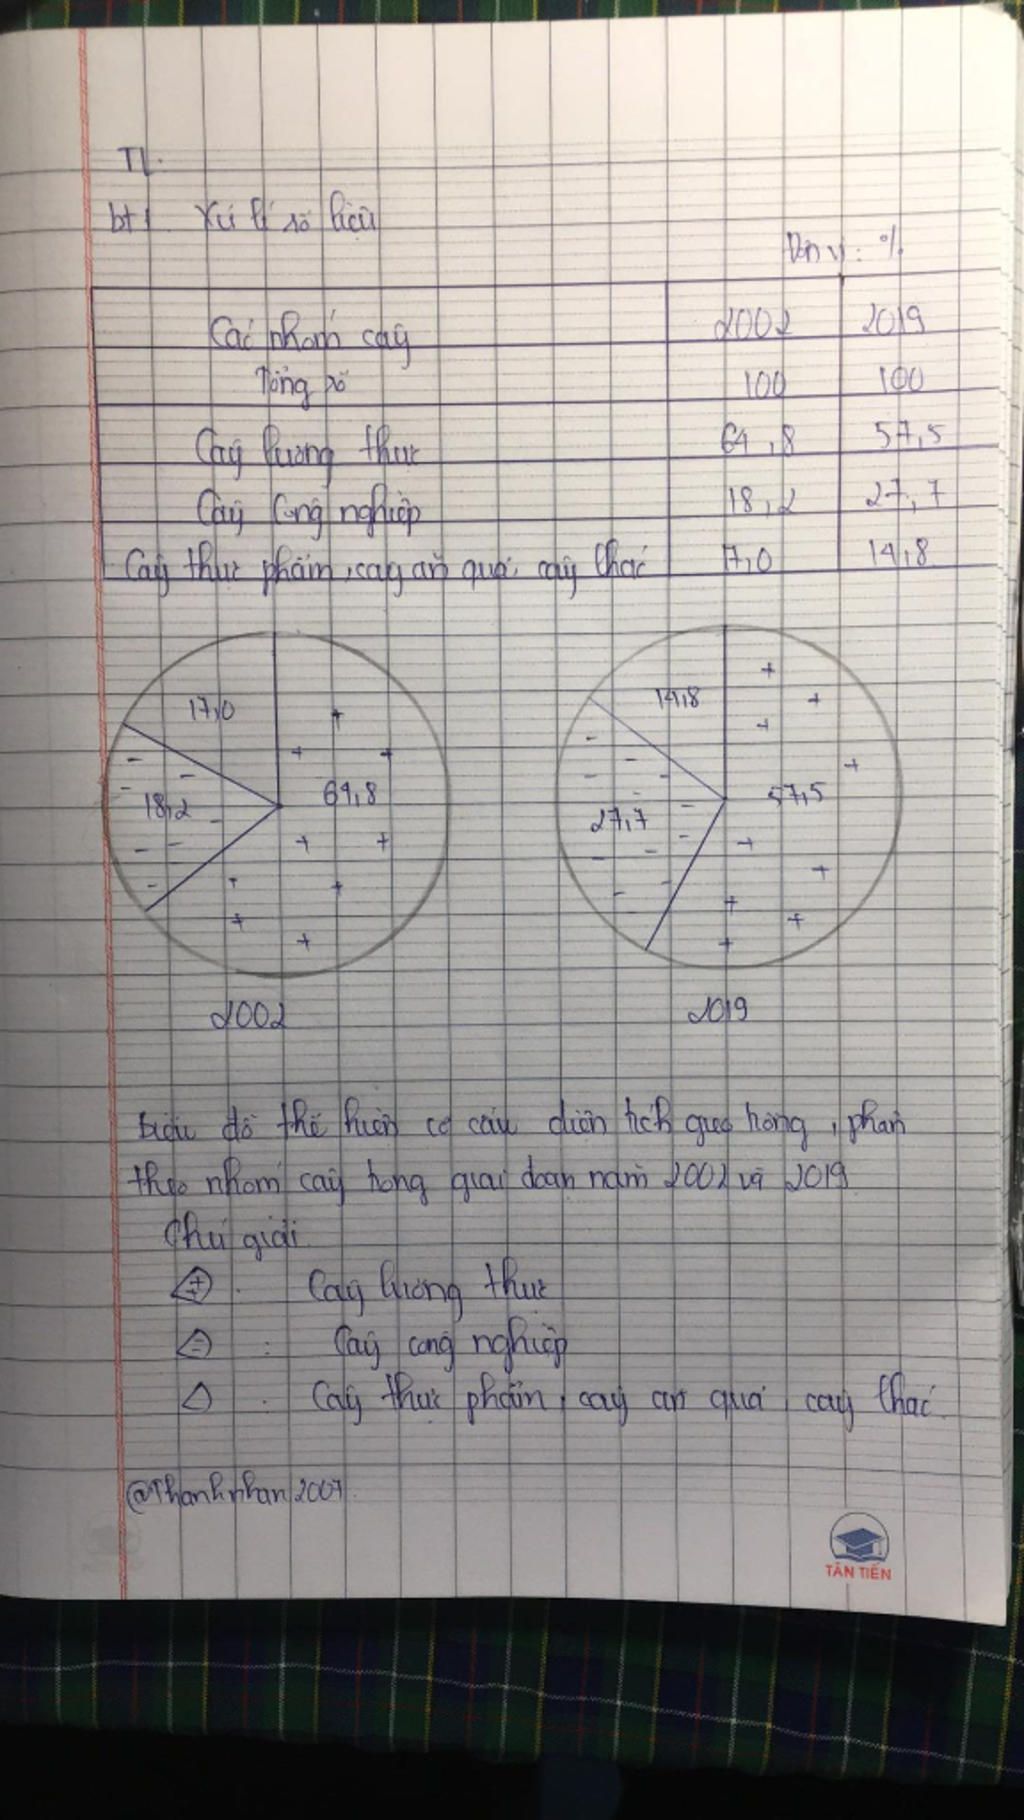 TL:
bt1. Xử lí số liệu
Đơn vị: %
Các nhóm cây 2002 2019
Tổng số 100 100
Cây lương thực 64,8 57,5
Cây công nghiệp 18,2 27,7
Cây thực phẩm, cây ăn quả, cây khác 17,0 14,8
17,0 18,2 64,8
14,8 27,7 57,5
2002 2019
Biểu đồ thể hiện cơ cấu diện tích gieo trồng, phân
theo nhóm cây trồng giai đoạn năm 2002 và 2019
Chú giải
+ : Cây lương thực
- : Cây công nghiệp
: Cây thực phẩm, cây ăn quả, cây khác.
@Thanhnhan2007.
TÂN TIẾN